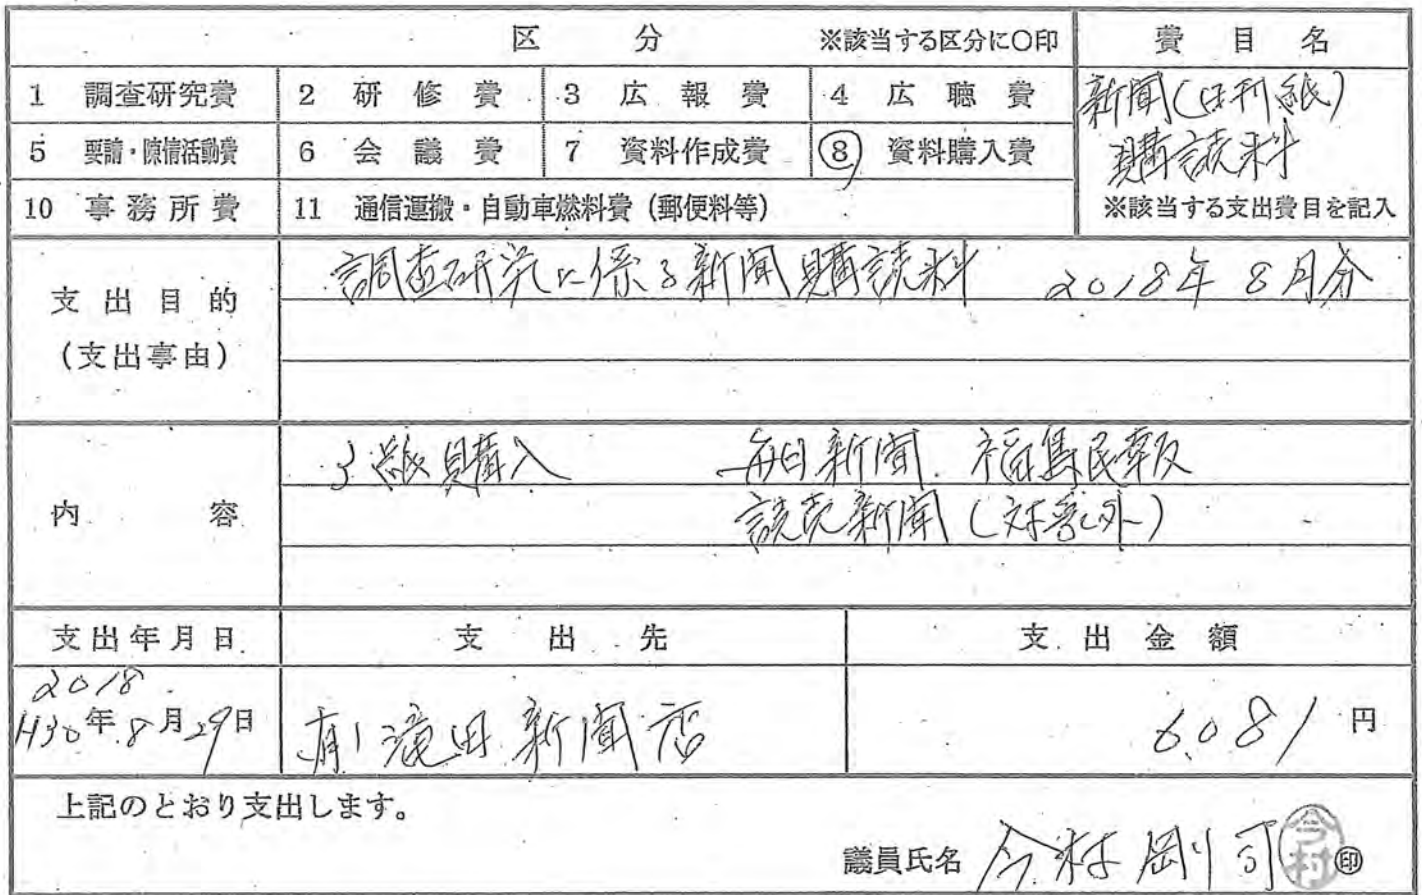 区 分 ※該当する区分に○印 費 目 名
1 調査研究費 2 研 修 費 3 広 報 費 4 広 聴 費
新聞(日刊紙)
5 要請・陳情活動費 6 会 議 費 7 資料作成費 ⑧ 資料購入費
購読料
10 事務所費 11 通信運搬・自動車燃料費(郵便料等)
※該当する支出費目を記入
支 出 目 的
(支出事由)
調査研究に係る新聞購読料 2018年8月分
内 容
3紙購入 毎日新聞 福島民報
読売新聞(対象外)
支出年月日 支 出 先 支 出 金 額
2018
H30年8月29日 有)滝田新聞店 6,081 円
上記のとおり支出します。
議員氏名 今村剛司 今村 ㊞